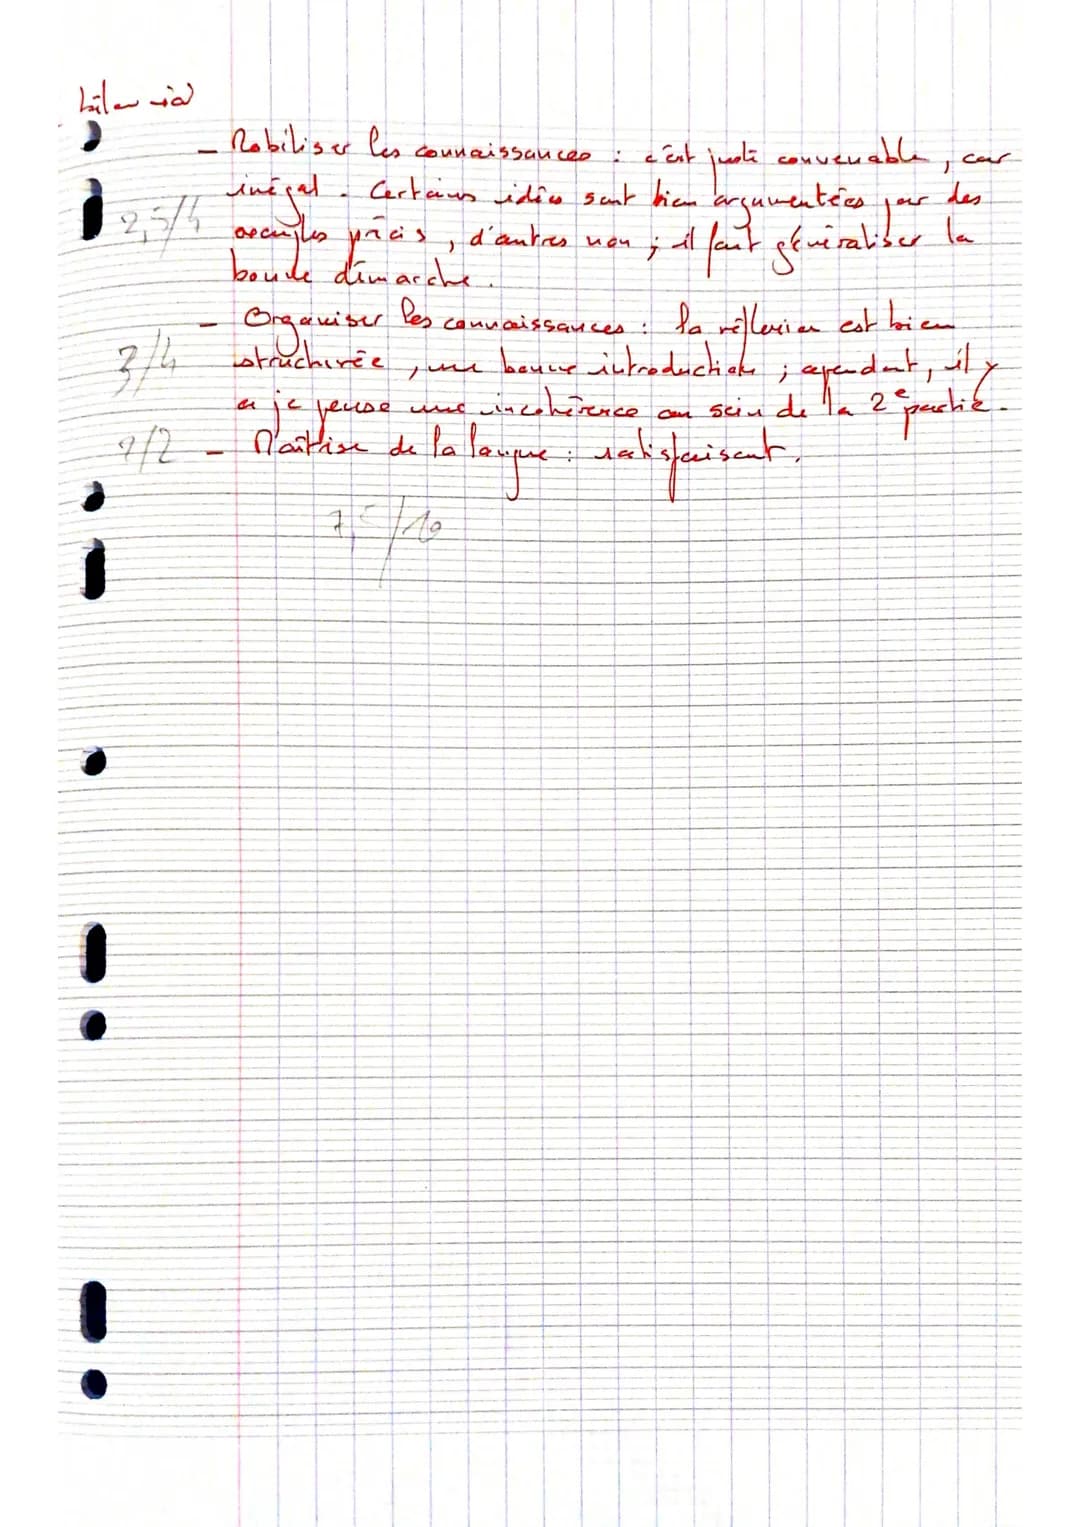 bilan
- Mobiliser les connaissances : c'est juste convenable, car
inégal. Certains idées sont bien argumentées par des
2,5/4 exemples précis, d'autres non ; il faut généraliser la
bonne démarche.
- Organiser les connaissances : la réflexion est bien
3/4 structurée, une bonne introduction ; cependant, il y
a je pense une incohérence au sein de la 2e partie.
2/2 - Maîtrise de la langue : satisfaisant.
7,5/10